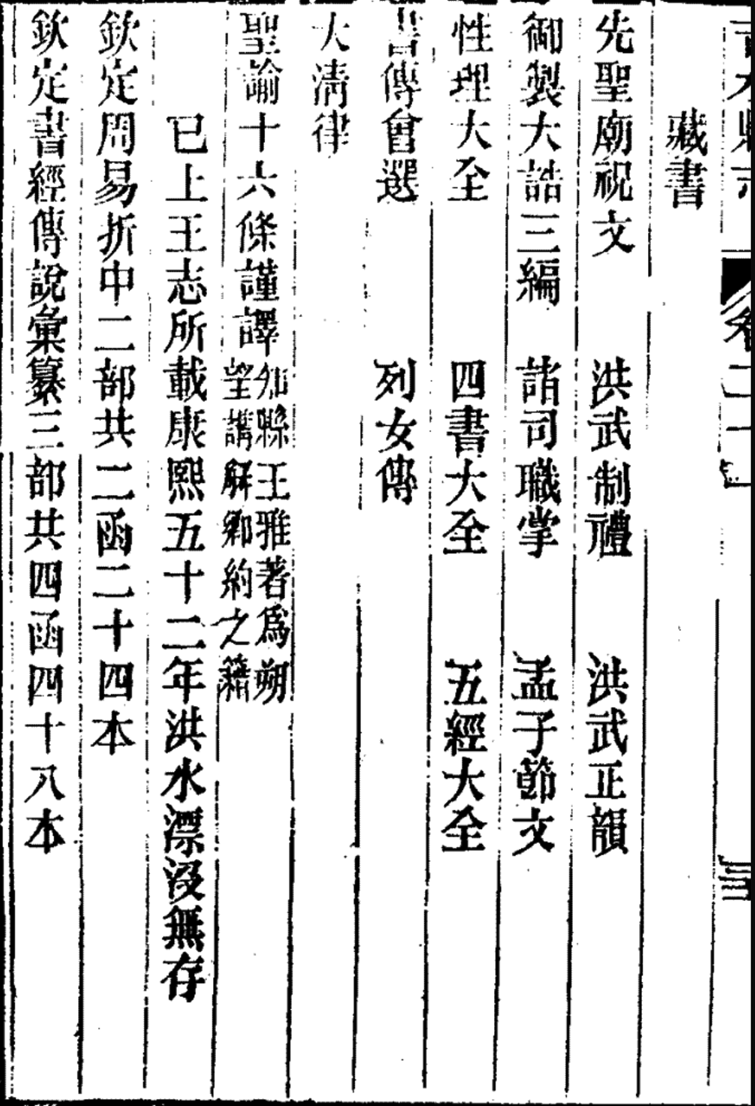 藏書
先聖廟祝文 洪武制禮 洪武正韻
御製大誥三編 諸司職掌 孟子節文
性理大全 四書大全 五經大全
書傳會選 列女傳
大清律
聖諭十六條謹譯 知縣王雅著爲朔望講解鄉約之籍
已上王志所載康熙五十二年洪水漂沒無存
欽定周易折中二部共二函二十四本
欽定書經傳說彙纂三部共四函四十八本